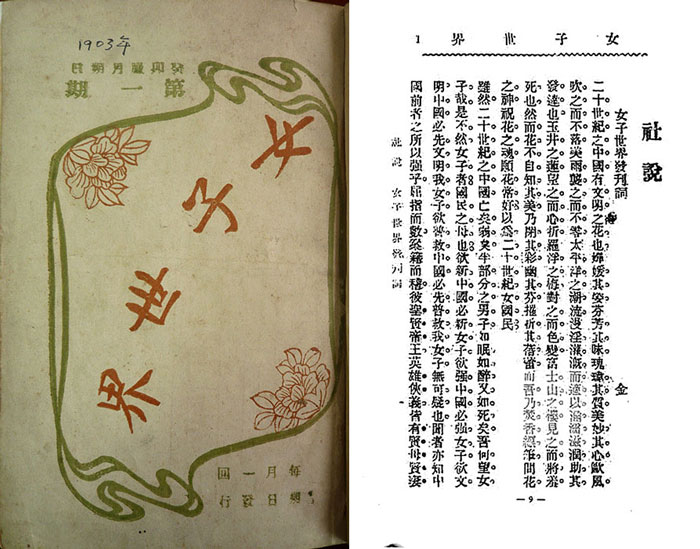 1903年
第一期
女子世界
每月一回
朔日發行
女子世界 1
社說
女子世界發刊詞
金一
二十世紀之中國有文明之花也。嬋媛其姿。芬芳其味。瑰瑋其質。美妙其心。歐風
吹之而不落。美雨襲之而不零。太平洋之潮流浸淫灌漑。而遂以滋潤助其
發達也。玉井之蓮望之而心折。羅浮之梅對之而色變。富士山之櫻見之而將飛
死也。然而花不自知其美。乃閉其彩。幽其芬。摧折其蓓蕾。而吾乃焚香筆間花
之神。祝花之魂。願花常好。以爲二十世紀女國民。
雖然二十世紀之中國亡矣弱矣。半部分之男子如眠如醉又如死矣。吾何望女
子哉。是不然。女子者國民之母也。欲新中國必新女子。欲強中國必強女子。欲文
明中國必先文明我女子。欲普救中國必先普救我女子。無可疑也。聞者亦知中
國前者之所以強乎。屈指而數。籍而稽。彼聖賢帝王英雄俠義。皆有賢母賢妻
社說 女子世界發刊詞
— 9 —